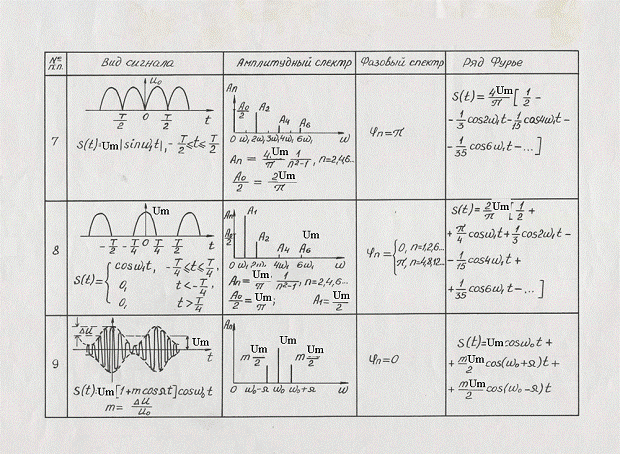 № п.п. Вид сигнала Амплитудный спектр Фазовый спектр Ряд Фурье
7
U₀
T/2 T/2 0 T/2 T/2 t
S(t)=Um|sinω₁t|, -T/2≤t≤T/2
Aп
A₀/2 A₂ A₄ A₆
0 ω₁ 2ω₁ 3ω₁ 4ω₁ 6ω₁ ω
Aп = 4Um/π 1/(n²-1), n=2,4,6...
A₀/2 = 2Um/π
φп=π
S(t)= 4Um/π [1/2 -
-1/3 cos2ω₁t-1/15 cos4ω₁t-
-1/35 cos6ω₁t-...]
8
Um
-T/2 -T/4 0 T/4 T/2 t
S(t)={ cosω₁t, -T/4≤t≤T/4,
0, t<-T/4,
0, t>T/4
Aп
A₁
A₀/2 A₂ A₄ A₆ Um
0 ω₁ 2ω₁ 4ω₁ 6ω₁ ω
Aп= Um/π 1/(n²-1), n=2,4,6...
A₀/2=Um/π; A₁=Um/2
φп={ 0, n=1,2,6...
π, n=4,8,12...
S(t)= 2Um/π [1/2 +
+π/4 cosω₁t+1/3 cos2ω₁t-
-1/15 cos4ω₁t+
+1/35 cos6ω₁t-...]
9
ΔU Um t
S(t)=Um[1+m cosΩt]cosω₀t
m= ΔU/U₀
Aп
Um
m Um/2 m Um/2
0 ω₀-Ω ω₀ ω₀+Ω ω
φп=0
S(t)=Um cosω₀t+
+ mUm/2 cos(ω₀+Ω)t+
+ mUm/2 cos(ω₀-Ω)t